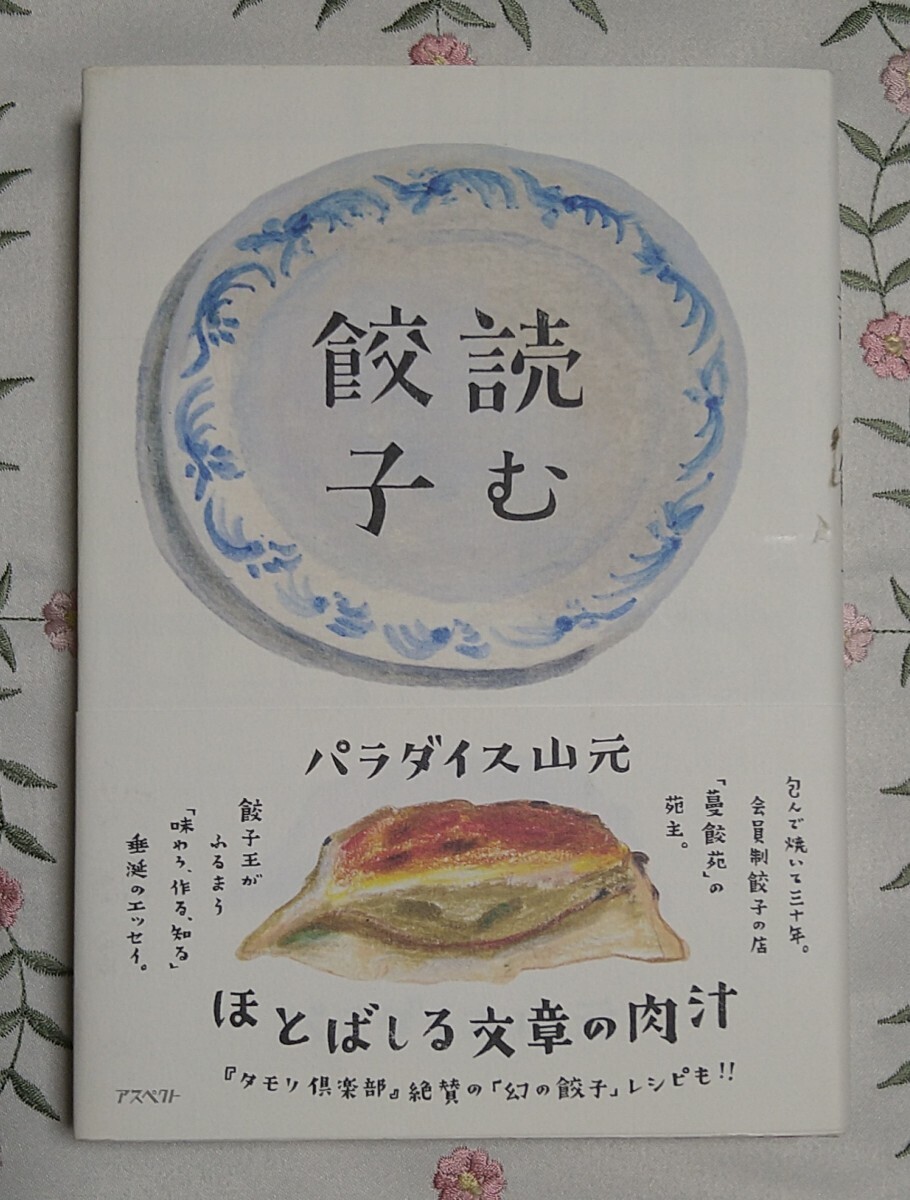 読む
餃子
パラダイス山元
包んで焼いて三十年。
会員制餃子の店
「蔓餃苑」の
苑主。
餃子王が
ふるまう
「味わう、作る、知る」
垂涎のエッセイ。
ほとばしる文章の肉汁
『タモリ倶楽部』絶賛の「幻の餃子」レシピも!!
アスペクト